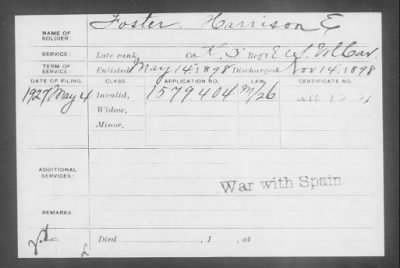 NAME OF SOLDIER: Foster, Harrison E
SERVICE: Late rank, Co. K, 3 Reg't U.S. Vol Cav
TERM OF SERVICE: Enlisted May 14, 1898 Discharged Nov 14, 1898
DATE OF FILING. CLASS. APPLICATION NO. LAW. CERTIFICATE NO.
1927 May 4 Invalid, 1579404 M/26
Widow,
Minor,
ADDITIONAL SERVICES:
War with Spain.
REMARKS
Died , 1 , at